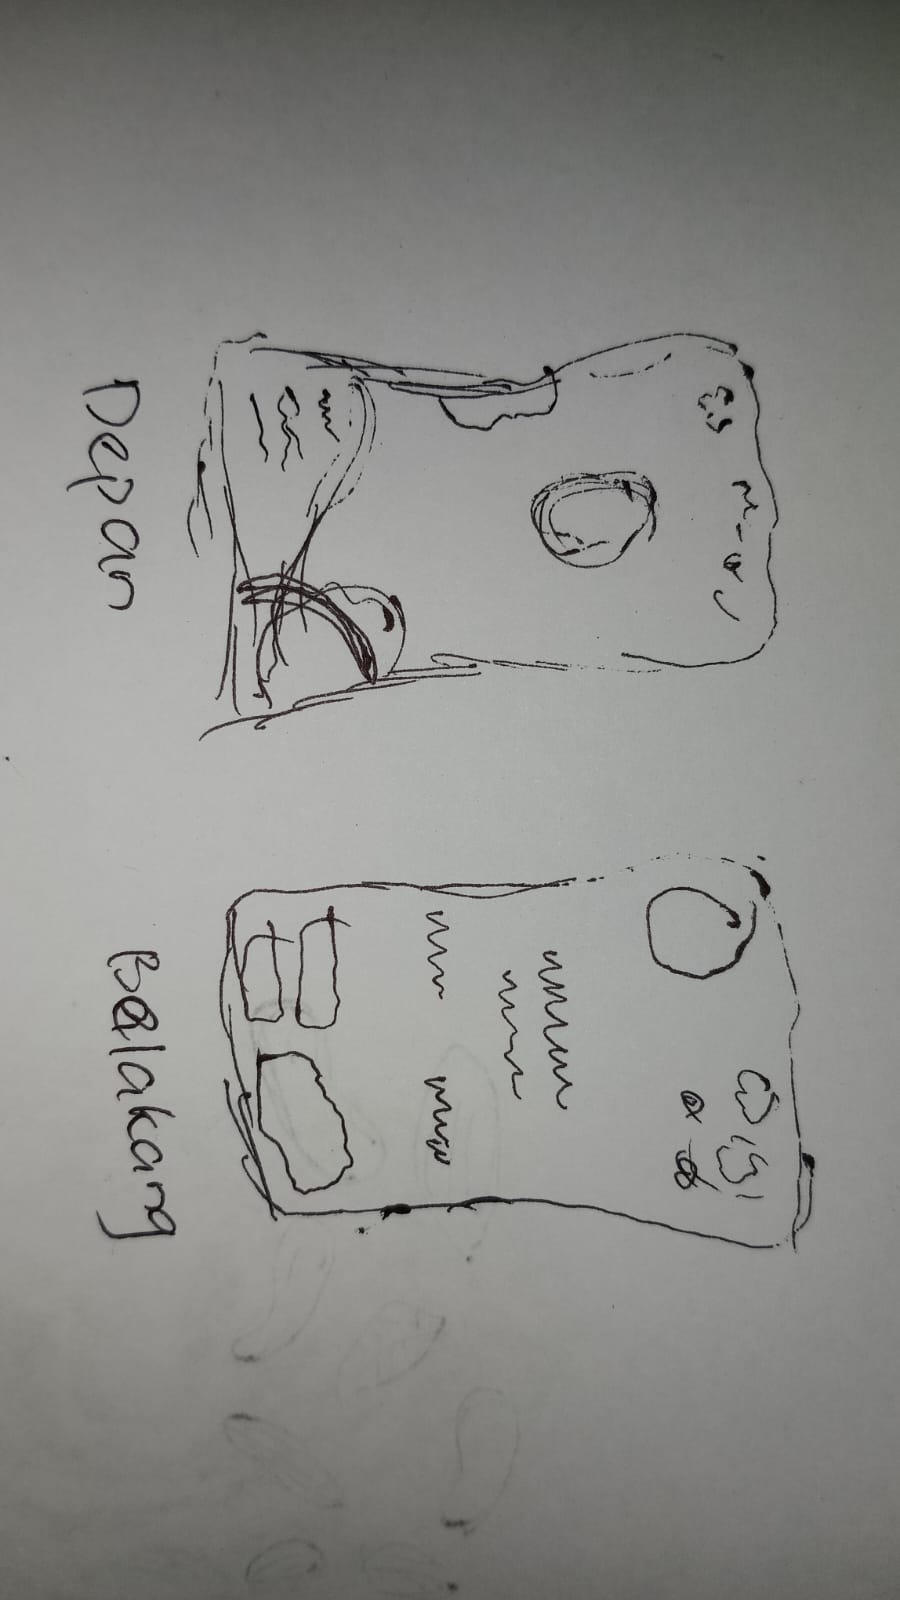 Depan
Balakang